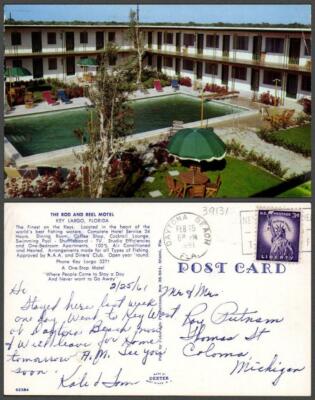 THE ROD AND REEL MOTEL
KEY LARGO, FLORIDA
The Finest on the Keys. Located in the heart of the
world's best fishing waters. Complete Hotel Service 24
Hours. Dining Room, Coffee Shop, Cocktail Lounge,
Swimming Pool - Shuffleboard - TV. Studio Efficiencies
and One-Bedroom Apartments. 100% Air Conditioned
and Heated. Arrangements made for all Types of Fishing.
Approved by A.A.A. and Diners' Club. Open year 'round.
Phone Key Largo 3271
A One-Stop Motel
"Where People Come to Stay a Day
And Never want to Go Away"
39131
DAYTONA BEACH
FEB
PM
FLA.
U.S. POSTAGE
LIBERTY
POST CARD
2/25/61
Hi
Stayed here last week
one day. Went to Key West
at Daytona Beach now
Will leave for home
tomorrow A.M. See you
soon.
Kate & Tom
Mr & Mrs.
Roy Putnam
Thomas St
Coloma
Michigan
DEXTER
92384